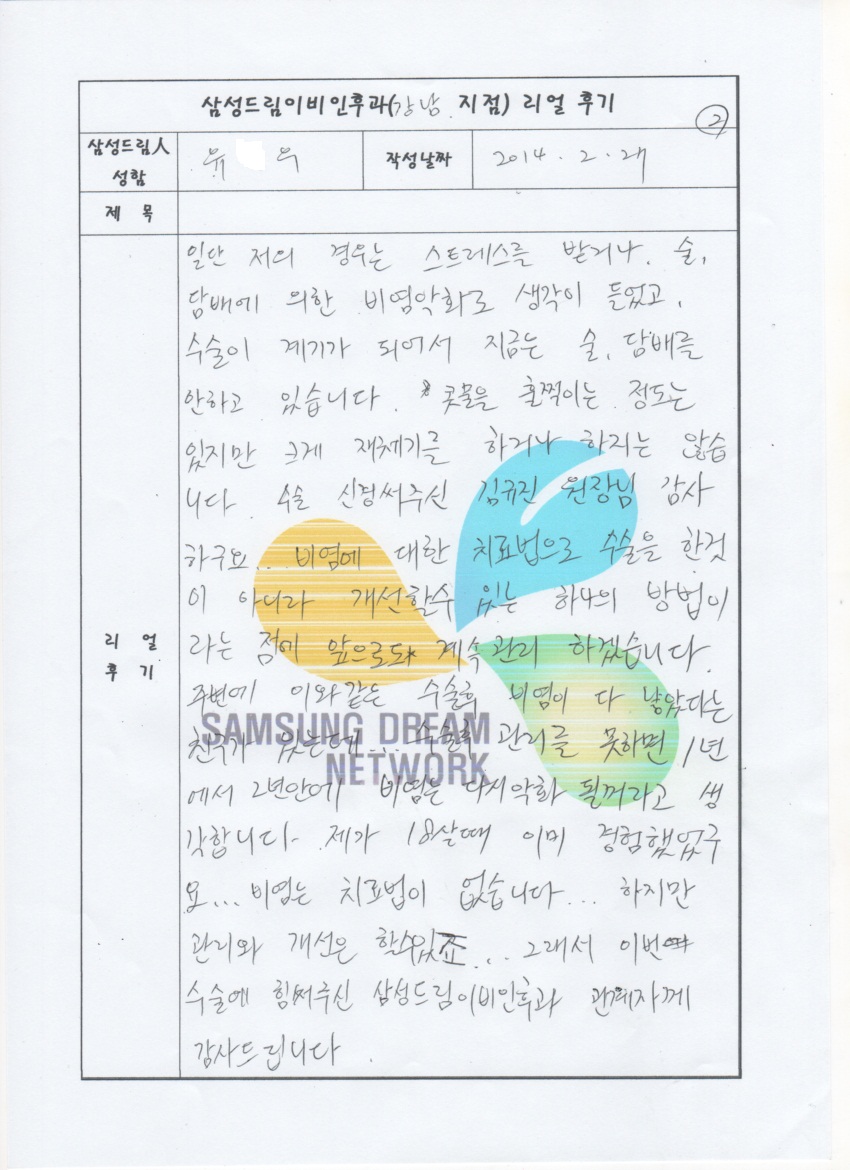 삼성드림이비인후과(강남 지점) 리얼 후기
2
삼성드림人 성함 유 우 작성날짜 2014. 2. 27
제 목
리얼 후기
일단 저의 경우는 스트레스를 받거나, 술,
담배에 의한 비염악화로 생각이 들었고,
수술이 계기가 되어서 지금은 술, 담배를
안하고 있습니다. 콧물을 훌쩍이는 정도는
있지만 크게 재체기를 하거나 하지는 않습
니다. 수술 신경써주신 김규진 원장님 감사
하구요... 비염에 대한 치료법으로 수술을 한것
이 아니라 개선할수 있는 하나의 방법이
라는 점에 앞으로도 계속 관리 하겠습니다.
주변에 이와같은 수술후 비염이 다 낳았다는
친구가 있는데... 수술후 관리를 못하면 1년
에서 2년안에 비염은 다시악화 될꺼라고 생
각합니다. 제가 18살때 이미 경험했었구
요... 비염는 치료법이 없습니다... 하지만
관리와 개선은 할수있죠... 그래서 이번
수술에 힘써주신 삼성드림이비인후과 관계자께
감사드립니다.
SAMSUNG DREAM
NETWORK